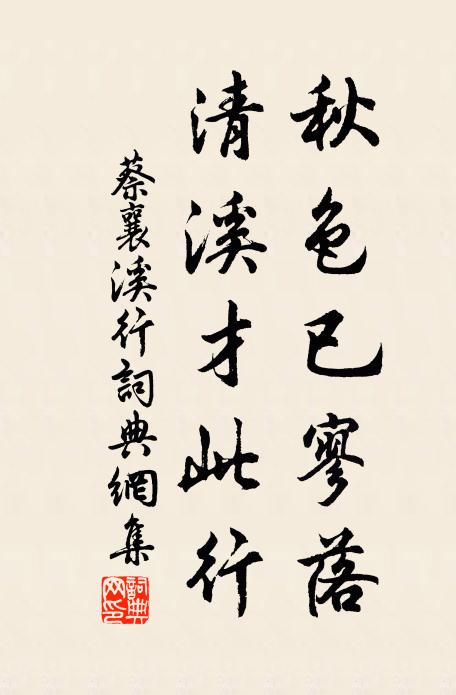 秋色已寥落
清溪才此行
蔡襄溪行詞典網集
詞典網印